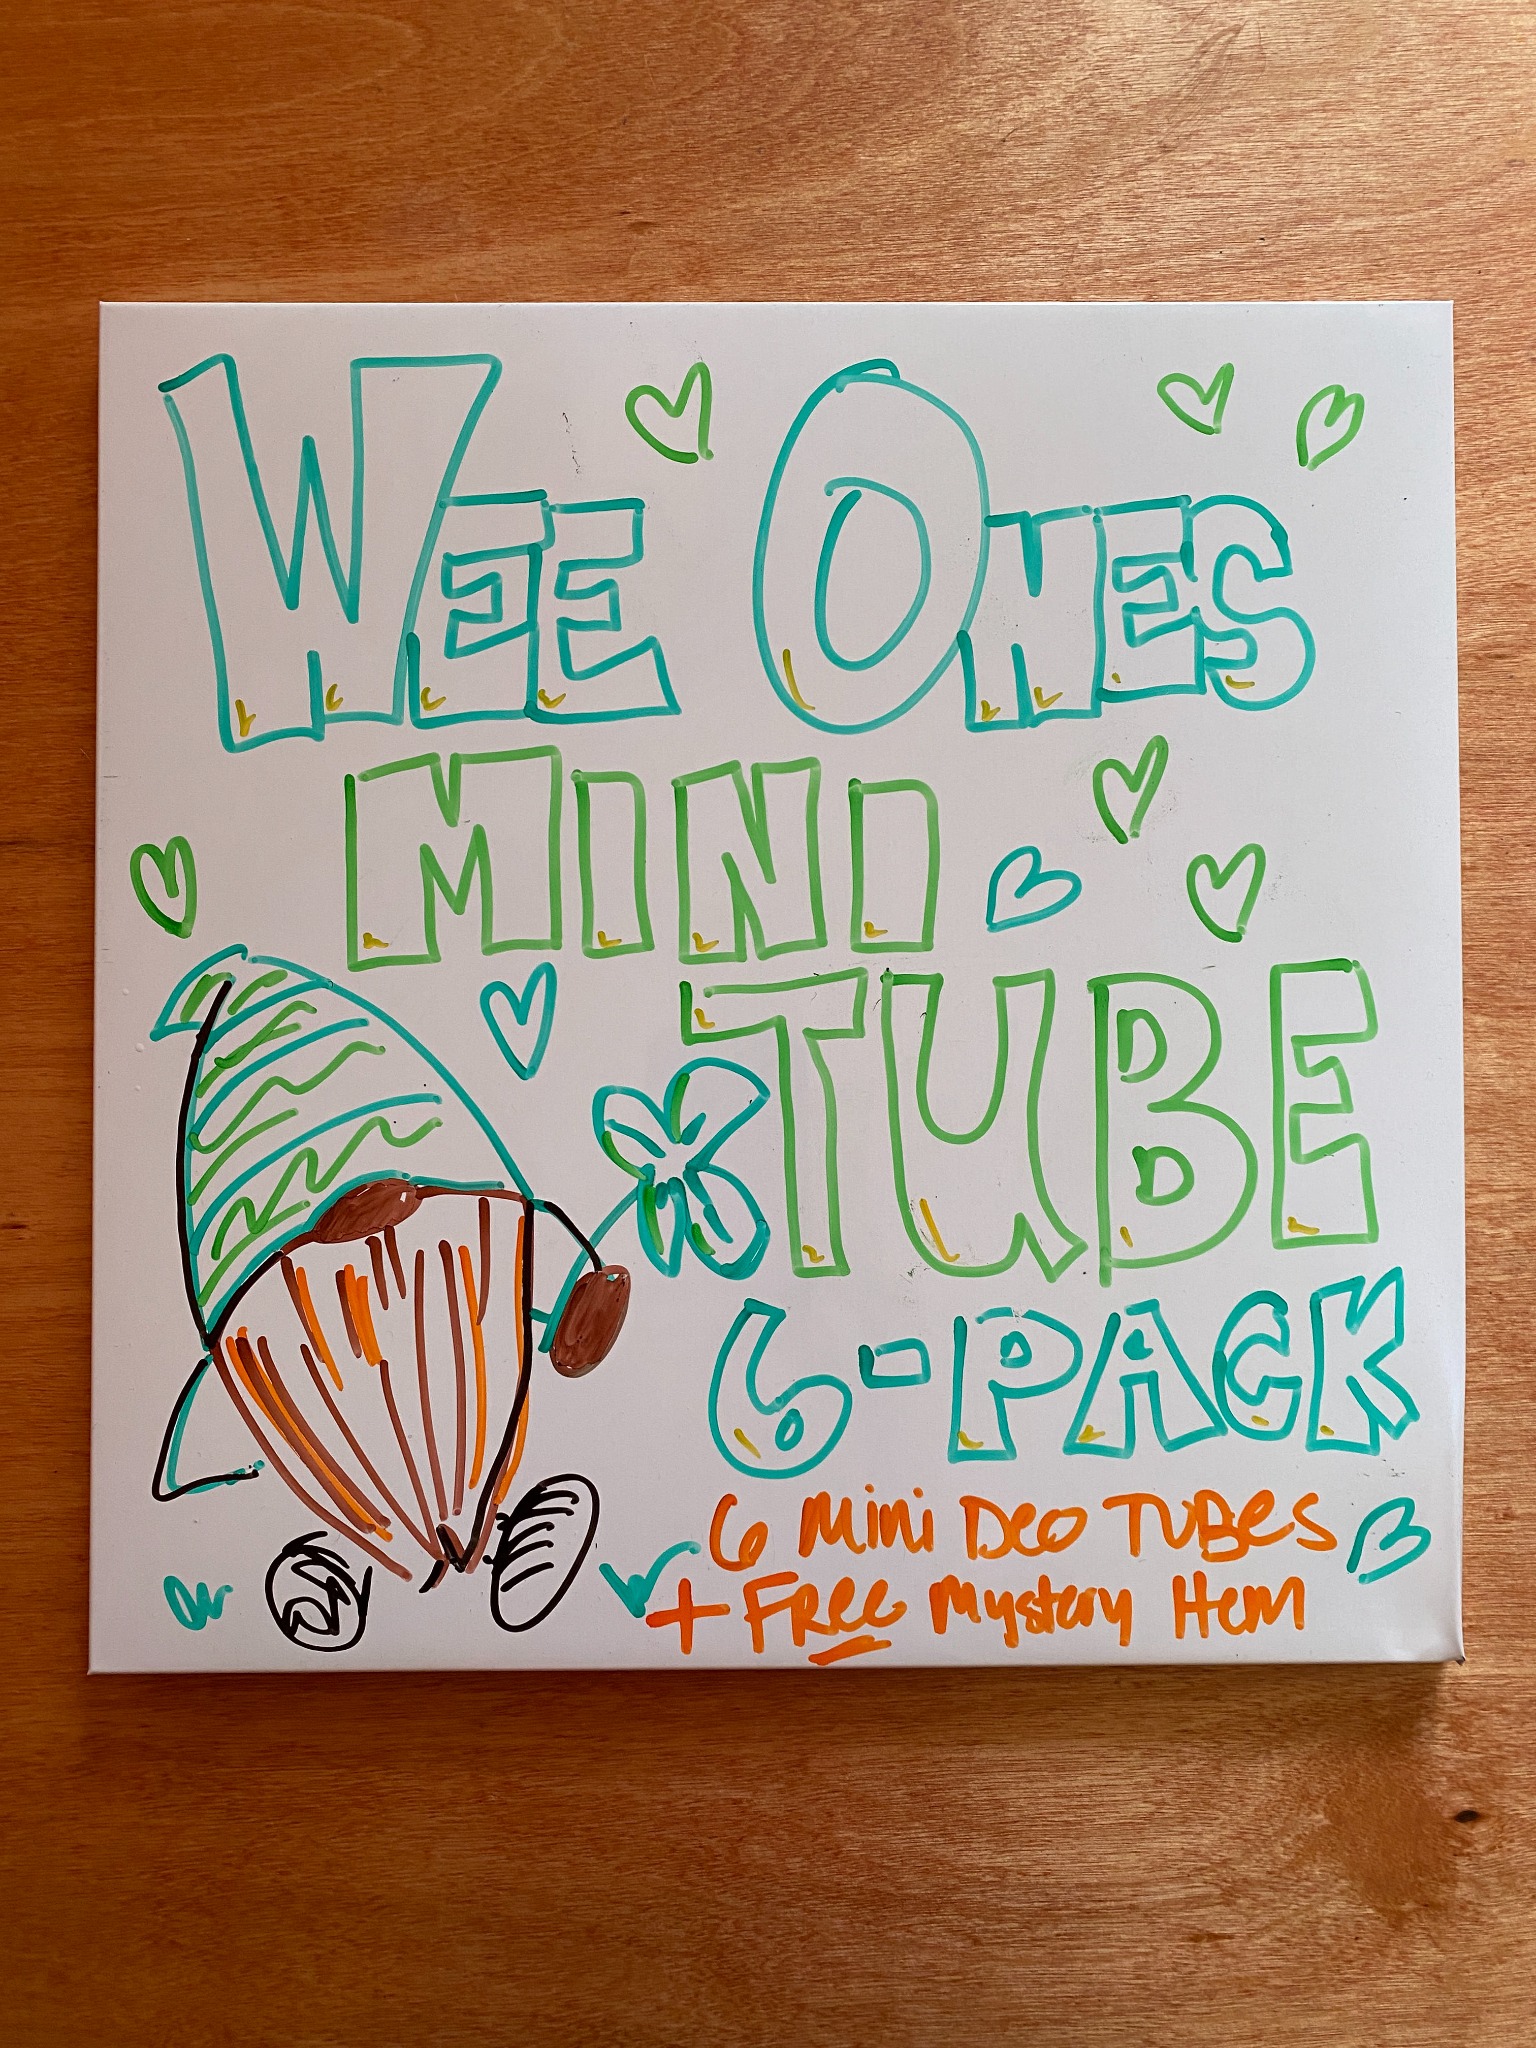 WEE ONES
MINI
TUBE
6-PACK
6 Mini Deo TUBes
+ FRee Mystery Item